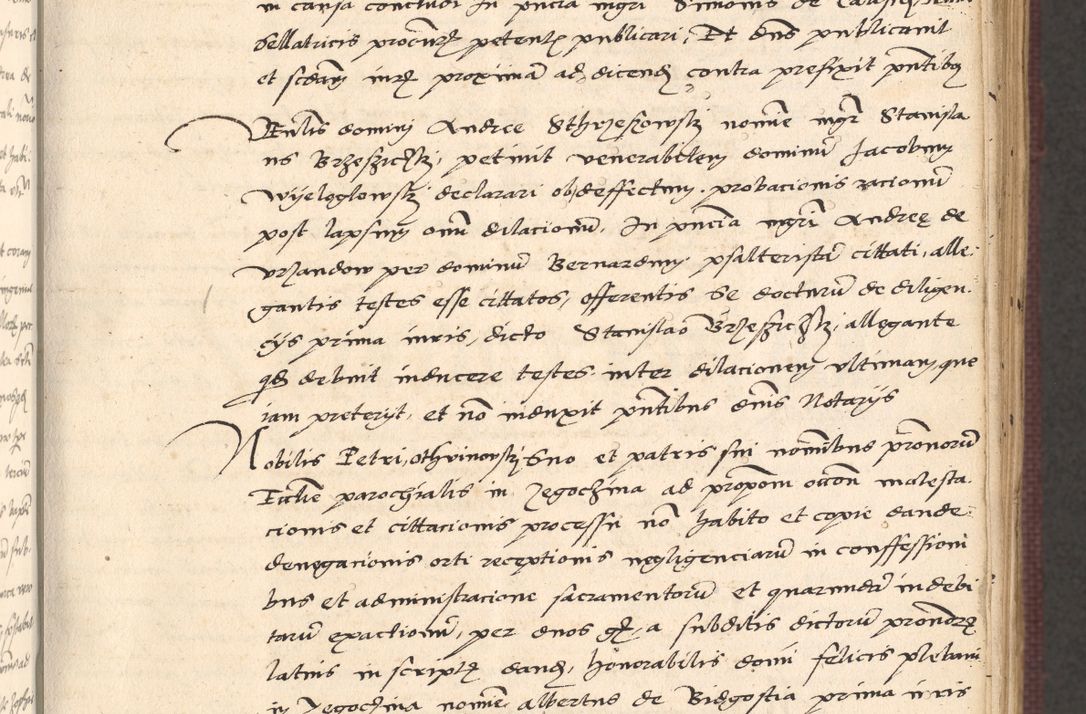 in causa concludi In pncia mgri Simonis de
Bellatricis procuratoris petentis publicari, Et dns publicavit
et scdam iuris proximã ad dicendum contra prefixit pntibus
Venlis domini Andree Sthrzeszowski nomine mgri Stanisla
us Brzeszicski, petiuit venerabilem dominũ Jacobum
Wyeloglowski declarari ob deffectum probacionis racionũ
post lapsum omũ dilacionũ, In pncia mgri Andreę de
Vrzandow per dominũ Bernardum psalteristã cittati, alle
gantis testes esse cittatos, offerentis se docturũ de diligen
cijs prima iuris, dicto Stanislao Brzeszicski, allegante
quod debuit inducere testes inter dilacionem vltimam, que
iam preterijt, et nõ induxit pntibus dnis Notarijs
Nobilis Petri Othvinowski suo et patris sui nominibus pronorũ
Ecclie parochialis in Zegoczina ad propom ocom molesta
cionis et cittacionis processu nõ habito et copie dande
denegacionis orti receptionis negligenciarũ in conffessioni
bus et administracione sacramentorũ et quarundã indebi
tarũ exactionũ, per dnos a subditis dictorũ pronorũ
latius in scriptis dandis, honorabilis domi felicis plebani
in Zegoczina nomine albertus de Bidgostia prima iuris